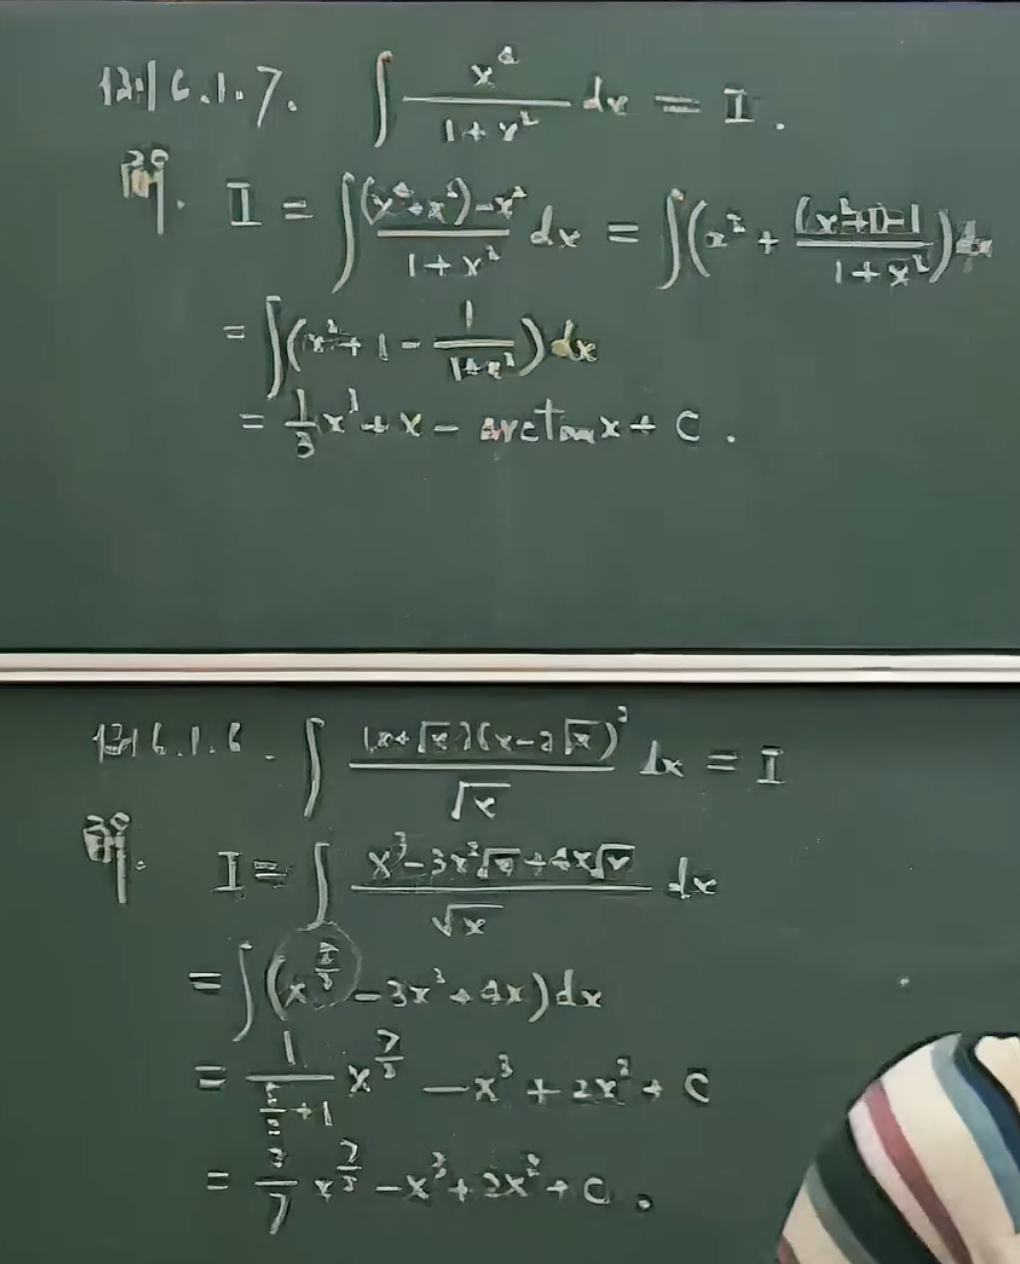 例 6.1.7. ∫ x⁴/(1+x²) dx = I.
解. I = ∫ ((x⁴+x²)-x²)/(1+x²) dx = ∫(x² + ((x²+1)-1)/(1+x²))dx
= ∫(x²+1-1/(1+x²))dx
= 1/3 x³+x-arctan x+C.
例 6.1.6. ∫ (x+√x)(x-2√x)²/√x dx = I
解. I = ∫ (x³-3x²√x+4x√x)/√x dx
= ∫(x^(5/2)-3x²+4x)dx
= 1/(5/2+1) x^(7/2) - x³ + 2x² + C
= 2/7 x^(7/2) - x³ + 2x² + C.